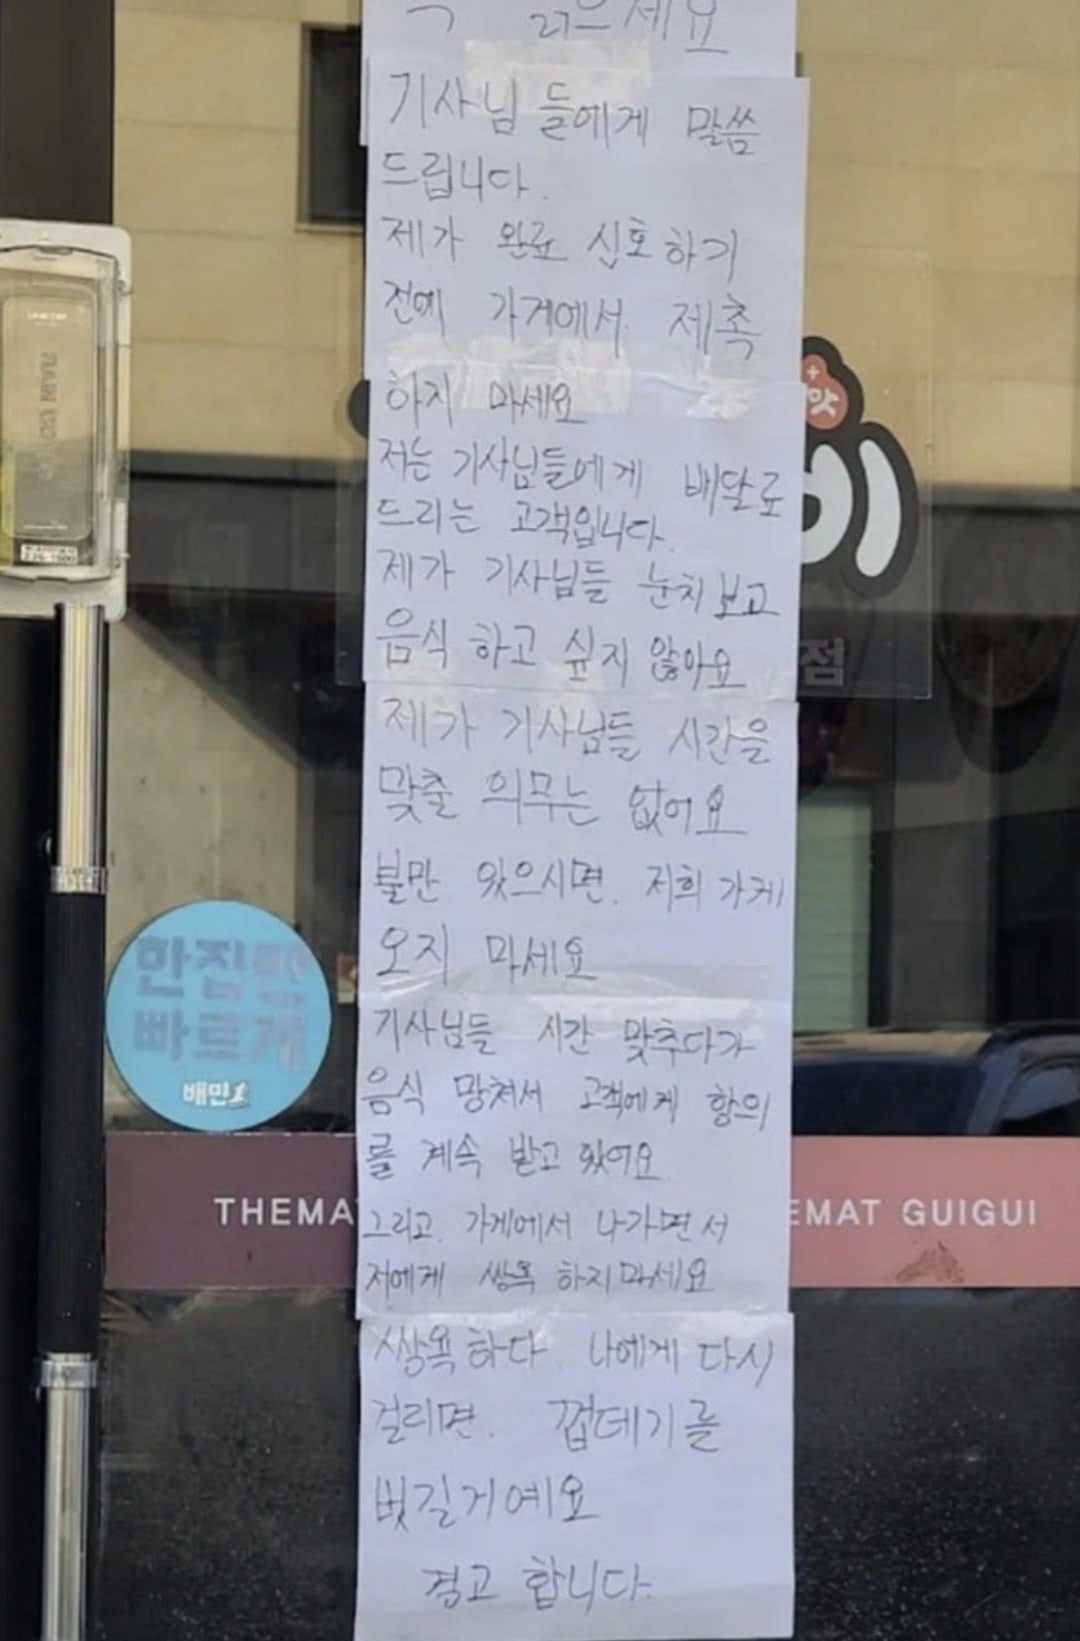 꼭 읽으세요
기사님들에게 말씀
드립니다.
제가 완료 신호하기
전에 가게에서 제촉
하지 마세요
저는 기사님들에게 배달료
드리는 고객입니다.
제가 기사님들 눈치 보고
음식 하고 싶지 않아요
제가 기사님들 시간을
맞출 의무는 없어요
불만 있으시면. 저희 가게
오지 마세요
기사님들 시간 맞추다가
음식 망쳐서 고객에게 항의
를 계속 받고 있어요
그리고. 가게에서 나가면서
저에게 쌍욕 하지마세요
쌍욕하다. 나에게 다시
걸리면. 껍데기를
벗길거예요
경고 합니다.
맛
점
한집만
빠르게
배민
THEMA
EMAT GUIGUI